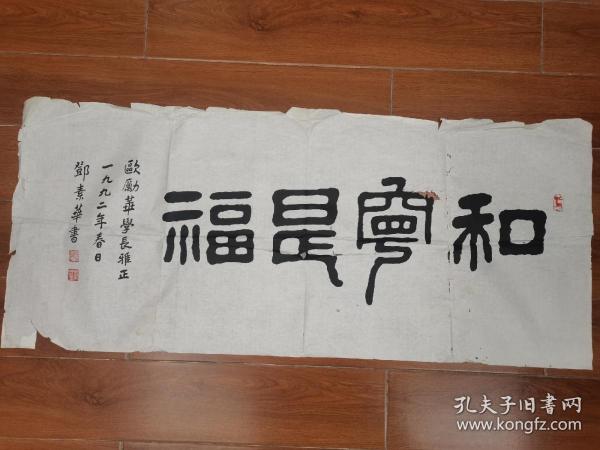 和寧是福
歐勵華學長雅正
一九九二年春日
鄧素華書
孔夫子旧書网
www.kongfz.com